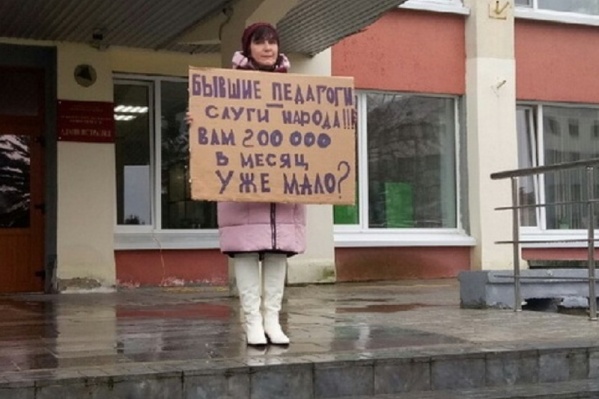 БЫВШИЕ ПЕДАГОГИ_
СЛУГИ НАРОДА!!!
ВАМ 200 000
В МЕСЯЦ
УЖЕ МАЛО?